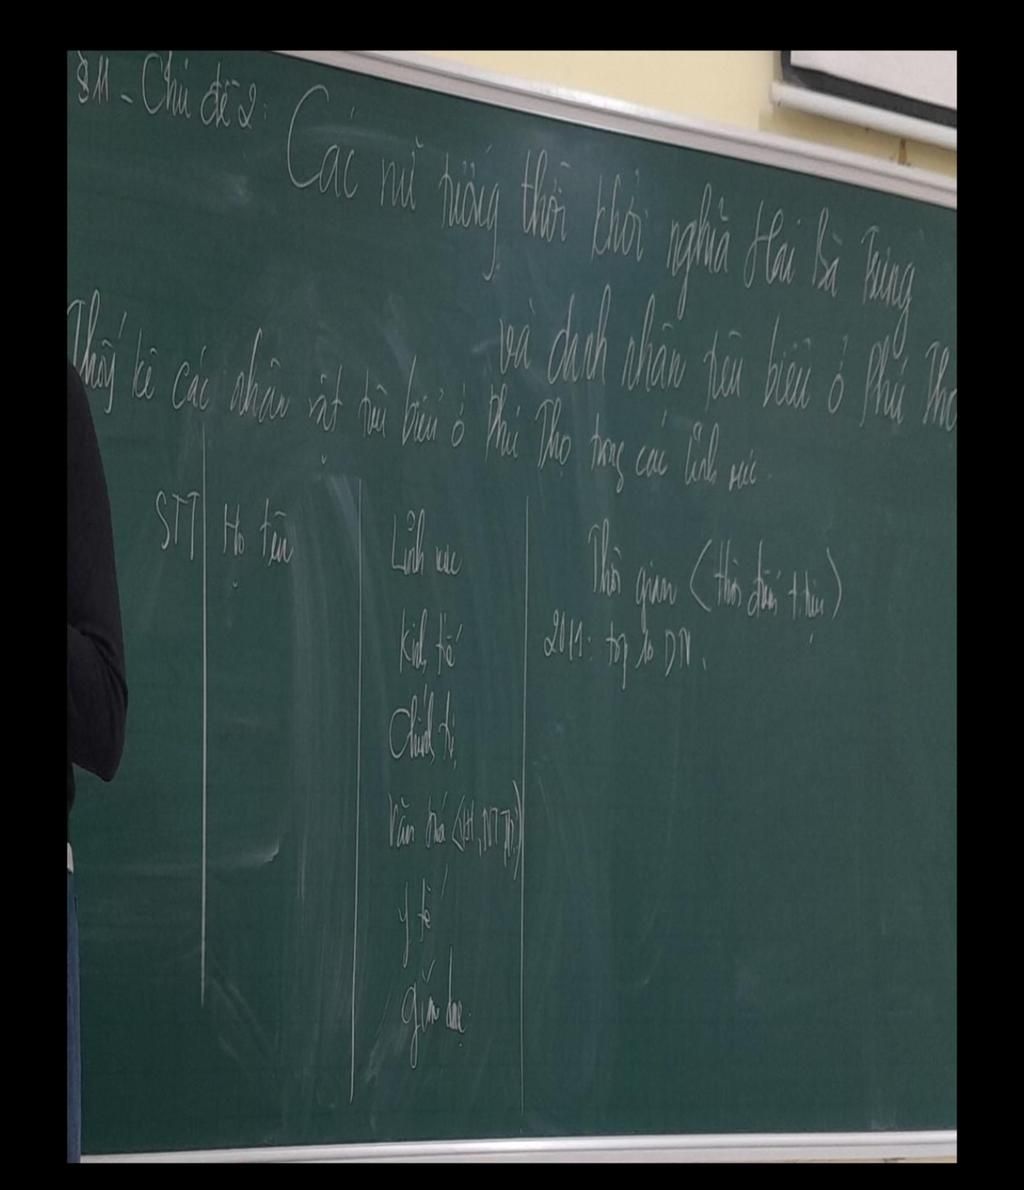 - Chủ đề 2: Các nữ tướng thời khởi nghĩa Hai Bà Trưng
và danh nhân tiêu biểu ở Phú Thọ
Thống kê các nhân vật tiêu biểu ở Phú Thọ trong các lĩnh vực.
STT Họ tên Lĩnh vực Thời gian (thời điểm )
Kinh tế 2011: top 10 DN.
Chính trị
Văn hoá
y tế
giáo dục